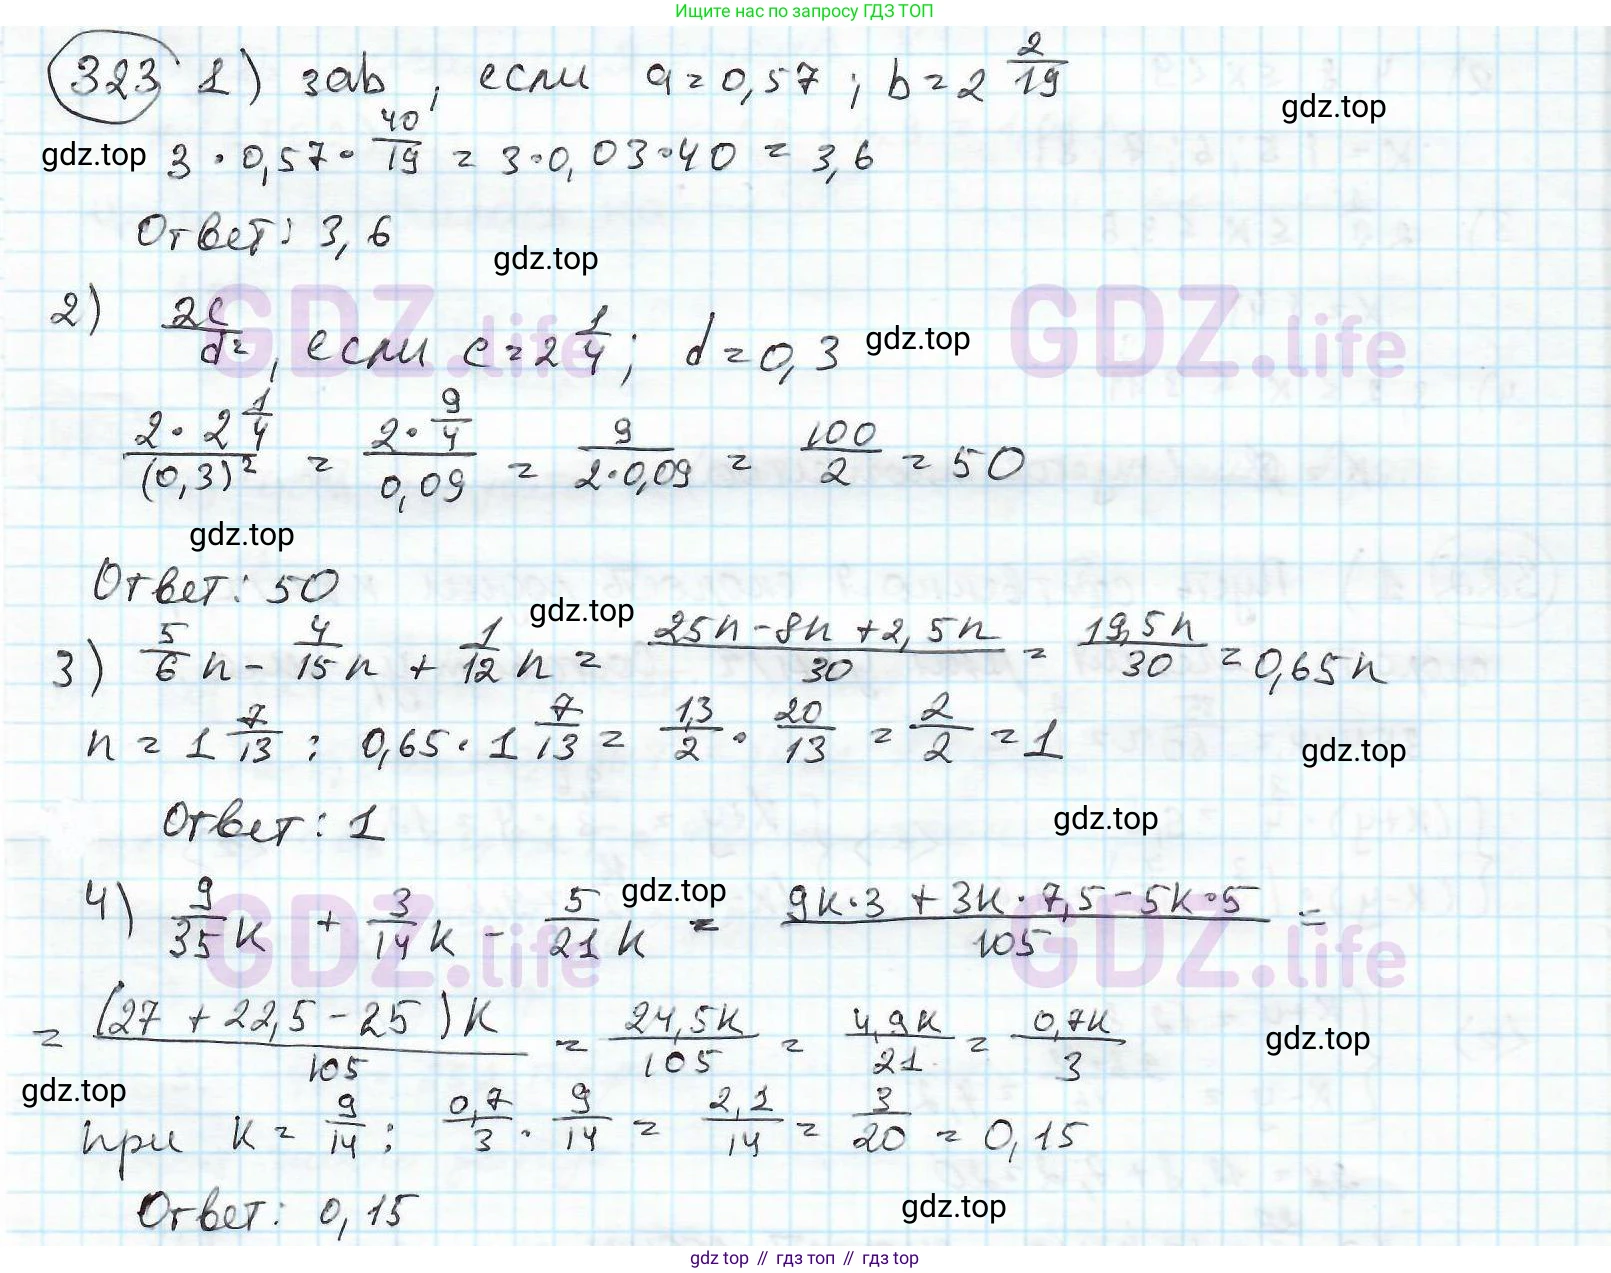 Ищите нас по запросу ГДЗ ТОП
323 1) 3ab, если a=0,57; b=2 2/19
gdz.top
gdz.top 3·0,57·40/19 = 3·0,03·40 = 3,6
Ответ: 3,6
gdz.top
2) 2c/d², если c=2 1/4; d=0,3 gdz.top
GDZ.life GDZ.life
2·2 1/4/(0,3)² = 2·9/4/0,09 = 9/2·0,09 = 100/2 = 50
gdz.top
Ответ: 50
gdz.top
3) 5/6 n - 4/15 n + 1/12 n = 25n-8n+2,5n/30 = 19,5n/30 = 0,65n
n=1 7/13: 0,65·1 7/13 = 1,3/2 · 20/13 = 2/2 = 1
gdz.top
Ответ: 1
gdz.top
gdz.top
4) 9/35 k + 3/14 k - 5/21 k = 9k·3+3k·7,5-5k·5/105 =
GDZ.life GDZ.life
= (27+22,5-25)k/105 = 24,5k/105 = 4,9k/21 = 0,7k/3
gdz.top
gdz.top
при k=9/14: 0,7/3 · 9/14 = 2,1/14 = 3/20 = 0,15
Ответ: 0,15
gdz.top
gdz top // гдз топ // гдз top